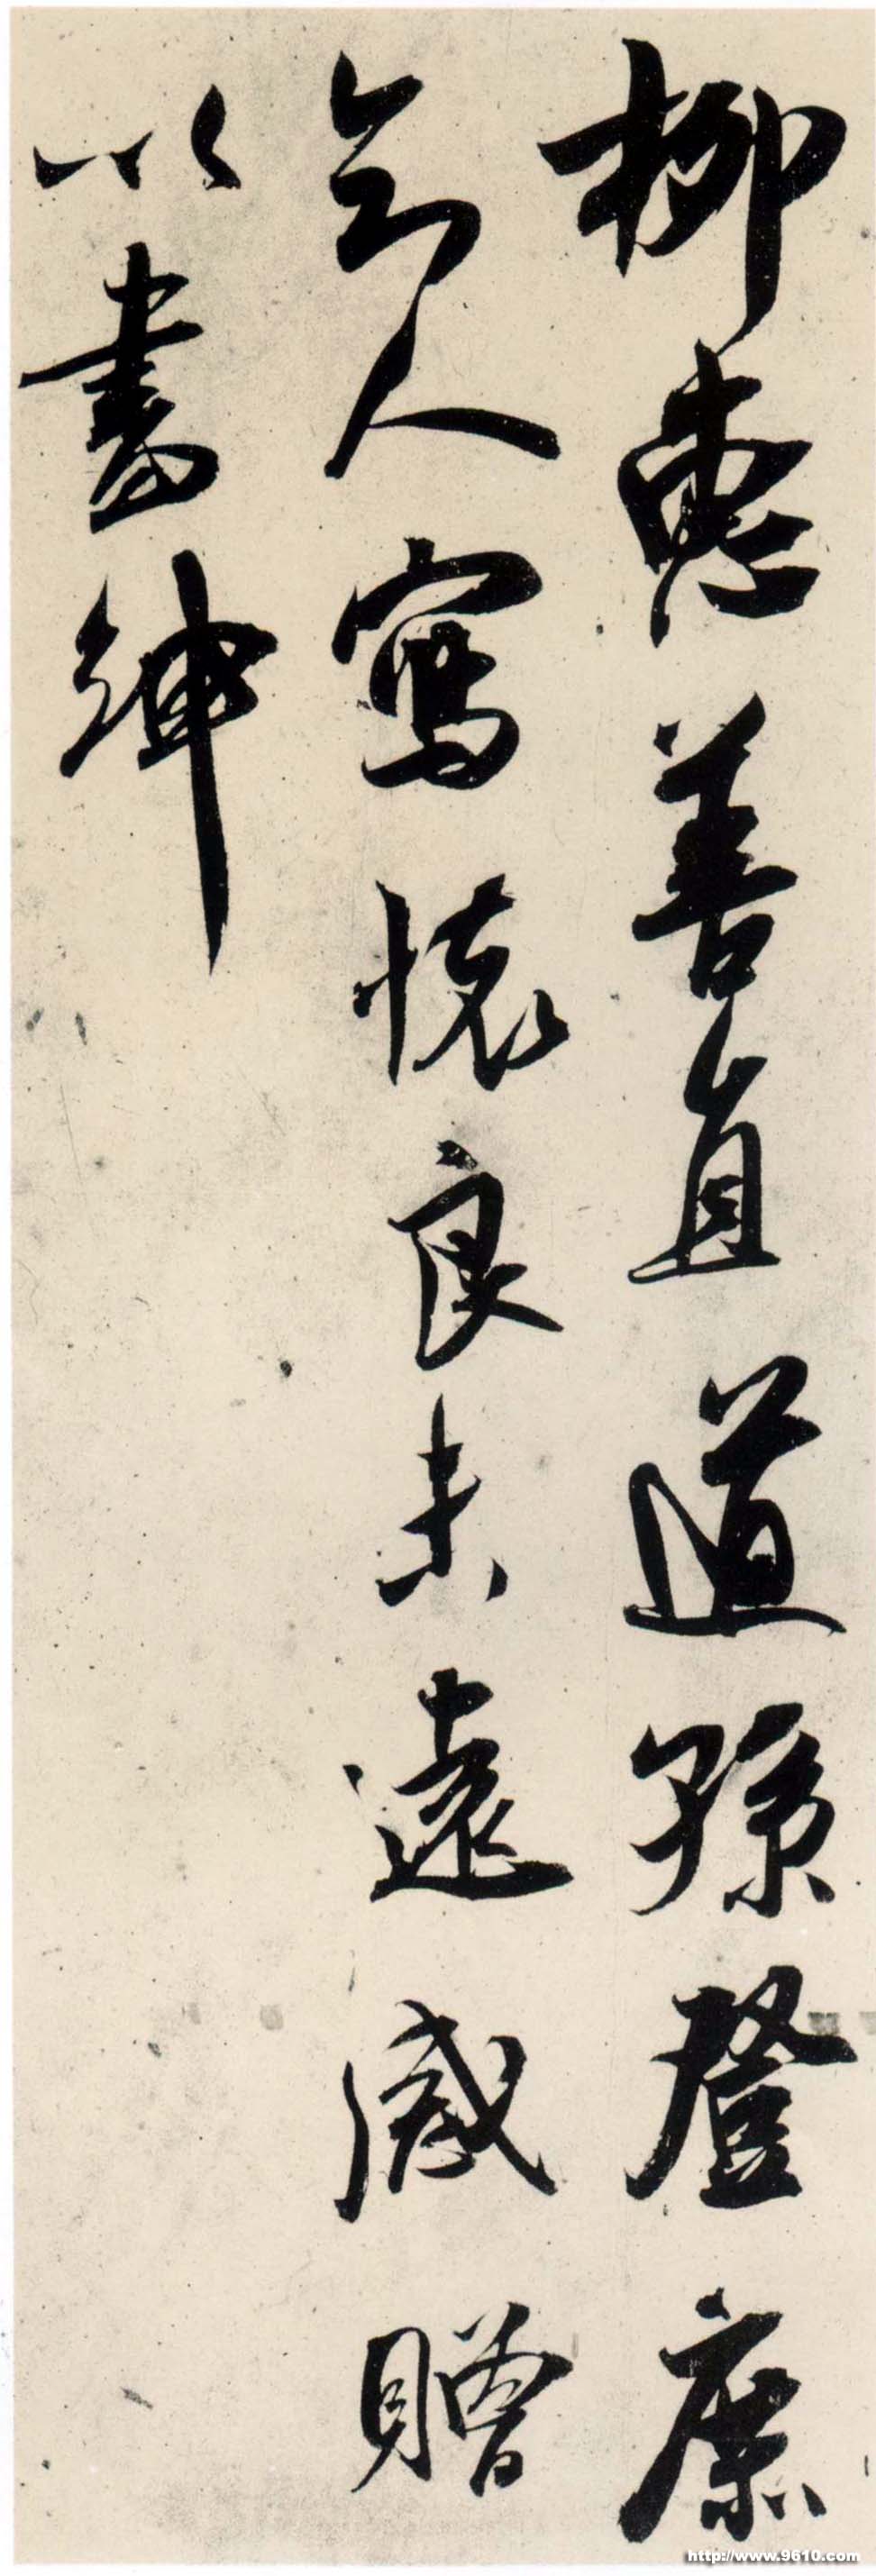 柳惠善直道孫登庶
知人寫懷良未遠感贈
以書紳
http://www.9610.com